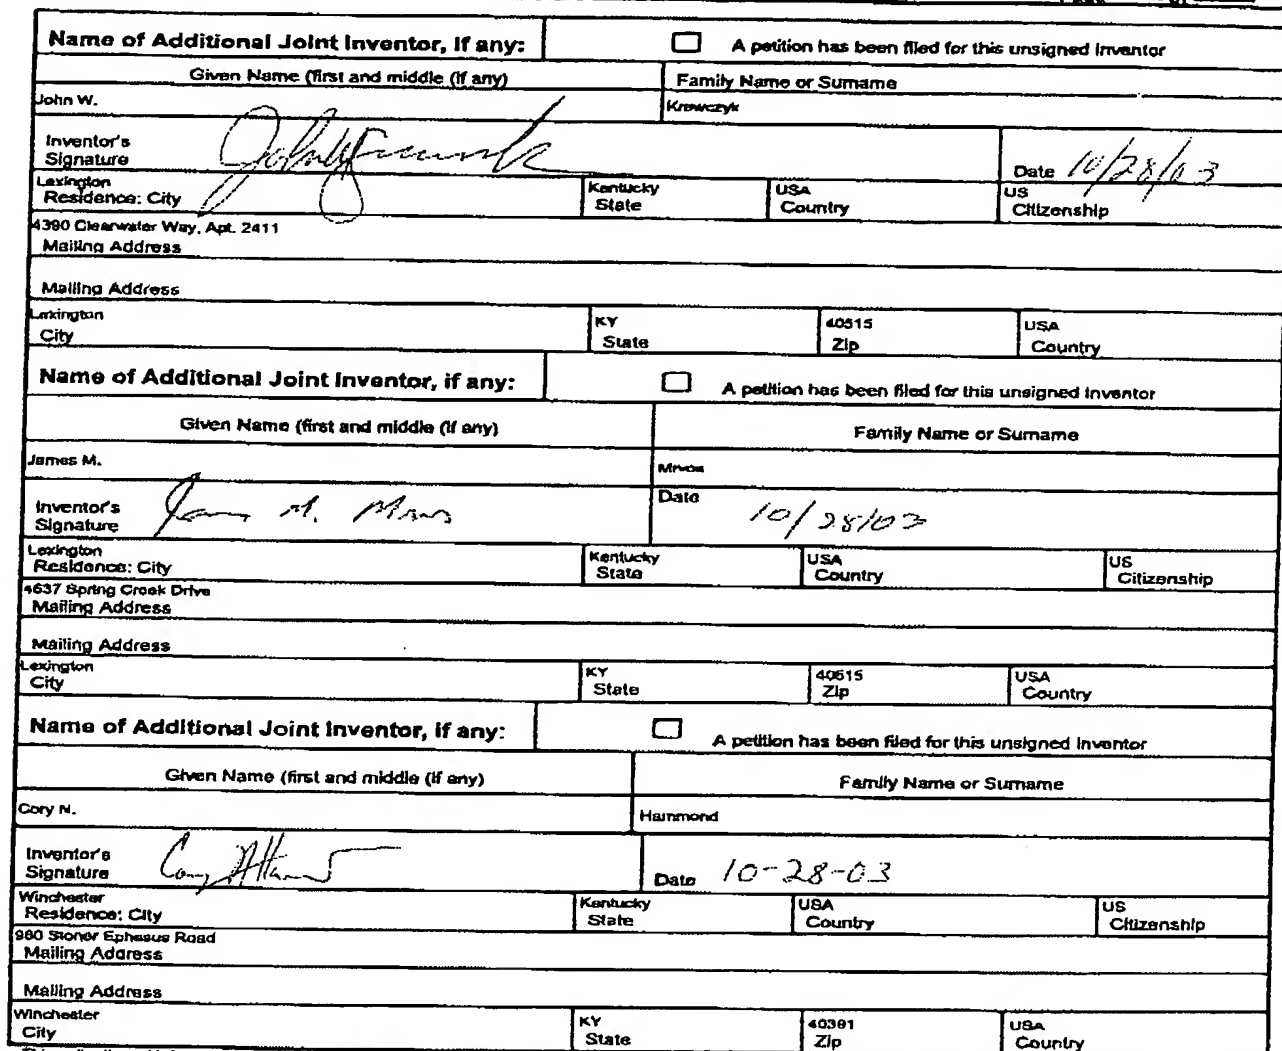 Name of Additional Joint Inventor, if any: A petition has been filed for this unsigned inventor
Given Name (first and middle (if any) Family Name or Surname
John W. Krawczyk
Inventor's
Signature Date 10/28/03
Lexington Kentucky USA US
Residence: City State Country Citizenship
4390 Clearwater Way, Apt. 2411
Mailing Address
Mailing Address
Lexington KY 40515 USA
City State Zip Country
Name of Additional Joint Inventor, if any: A petition has been filed for this unsigned inventor
Given Name (first and middle (if any) Family Name or Surname
James M. Mrvos
Inventor's James M. Mrvos Date 10/28/03
Signature
Lexington Kentucky USA US
Residence: City State Country Citizenship
4637 Spring Creek Drive
Mailing Address
Mailing Address
Lexington KY 40515 USA
City State Zip Country
Name of Additional Joint Inventor, if any: A petition has been filed for this unsigned inventor
Given Name (first and middle (if any) Family Name or Surname
Cory N. Hammond
Inventor's
Signature Date 10-28-03
Winchester Kentucky USA US
Residence: City State Country Citizenship
980 Stoner Ephesus Road
Mailing Address
Mailing Address
Winchester KY 40391 USA
City State Zip Country